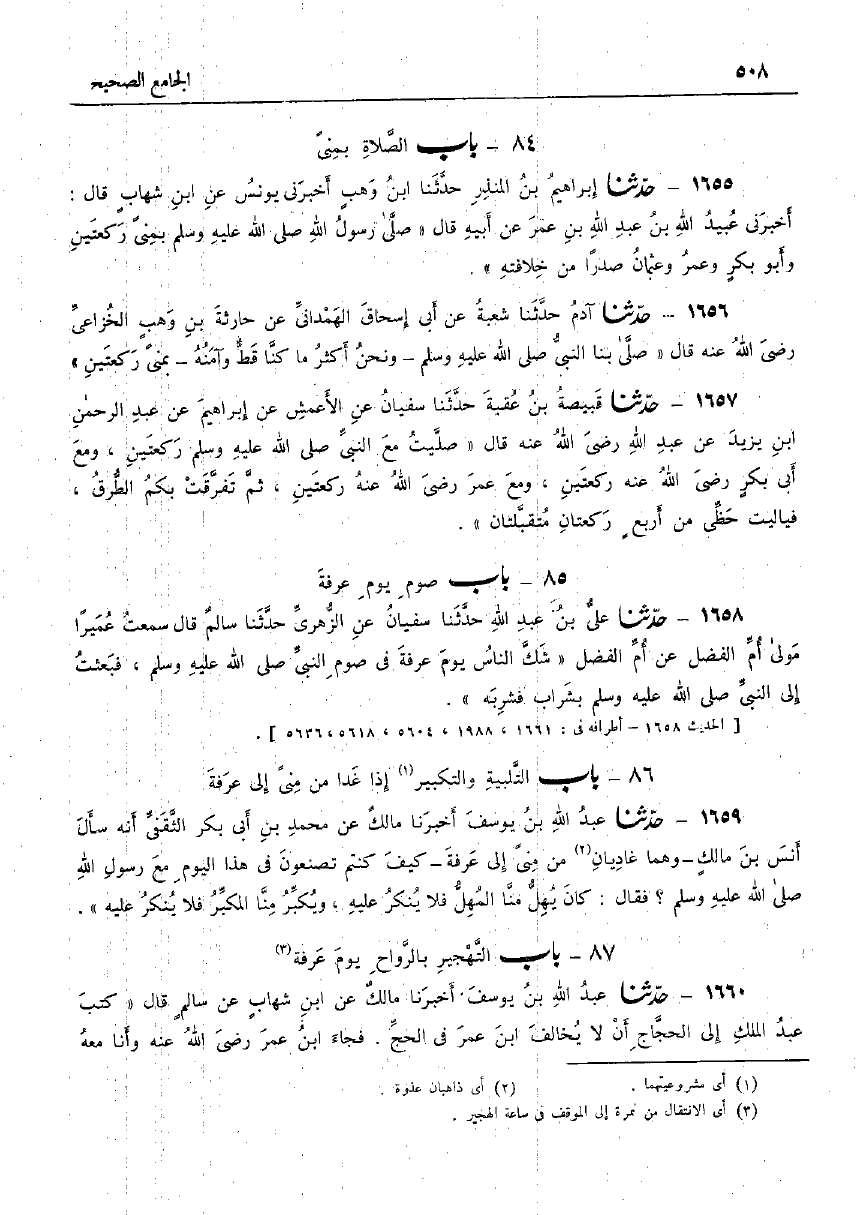 ٥٠٨
الجامع الصحيح
٨٤ - باب الصَّلاةِ بِمِنىً
١٦٥٥ - حدّثنا إبراهيمُ بنُ المنذِرِ حدَّثَنا ابنُ وَهبٍ أخبرَنى يونسُ عنِ ابنِ شهابٍ قال :
أخبرَنى عُبيدُ اللهِ بنُ عبدِ اللهِ بنِ عمرَ عن أبيهِ قال « صلَّىٰ رسولُ اللهِ صلى الله عليهِ وسلم بِمِنىً رَكعتَينِ
وأبو بكرٍ وعمرُ وعثمانُ صدرًا من خِلافتهِ » .
١٦٥٦ - حدّثنا آدمُ حدَّثَنا شعبةُ عن أبى إسحاقَ الهَمْدانىِّ عن حارثةَ بنِ وَهبٍ الخُزاعىِّ
رضىَ اللهُ عنه قال « صلَّىٰ بنا النبىُّ صلى الله عليهِ وسلم - ونحنُ أكثرُ ما كنَّا قَطُّ وآمَنُهُ - بمنىً رَكعتَينِ »
١٦٥٧ - حدّثنا قَبيصةُ بنُ عُقبةَ حدَّثَنا سفيانُ عنِ الأعمشِ عن إبراهيمَ عن عبدِ الرحمٰنِ
ابنِ يزيدَ عن عبدِ اللهِ رضىَ اللهُ عنه قال « صلَّيتُ معَ النبىِّ صلى الله عليهِ وسلم رَكعتَينِ ، ومعَ
أبى بكرٍ رضىَ اللهُ عنه ركعتَينِ ، ومعَ عمرَ رضىَ اللهُ عنهُ ركعتَينِ ، ثمَّ تَفرَّقَتْ بكمُ الطُّرقُ ،
فياليت حَظِّى من أربعٍ ركعتانِ مُتقبَّلتان » .
٨٥ - باب صومِ يومِ عرفةَ
١٦٥٨ - حدّثنا علىُّ بنُ عبدِ اللهِ حدَّثَنا سفيانُ عنِ الزُّهرىِّ حدَّثَنا سالمٌ قال سمعتُ عُمَيرًا
مَولىٰ أُمِّ الفضل عن أُمِّ الفضل « شَكَّ الناسُ يومَ عرفةَ فى صومِ النبىِّ صلى الله عليهِ وسلم ، فبَعثتُ
إلى النبىِّ صلى الله عليه وسلم بشَرابٍ فشرِبَه » .
[ الحديث ١٦٥٨ - أطرافه فى : ١٦٦١ ، ١٩٨٨ ، ٥٦٠٤ ، ٥٦١٨ ، ٥٦٣٦ ] .
٨٦ - باب التَّلبيةِ والتكبير(١) إذا غَدا من مِنىً إلى عرَفةَ
١٦٥٩ - حدّثنا عبدُ اللهِ بنُ يوسفَ أخبرَنا مالكٌ عن محمدِ بنِ أبى بكر الثَّقَفىِّ أنه سأل
أنسَ بنَ مالكٍ - وهما غاديانِ(٢) من مِنىً إلى عرفةَ - كيفَ كنتم تصنعونَ فى هذا اليومِ معَ رسولِ اللهِ
صلىٰ الله عليهِ وسلم ؟ فقال : كانَ يُهِلُّ منَّا المُهِلُّ فلا يُنكرُ عليهِ ، ويُكبِّرُ مِنَّا المكبِّرُ فلا يُنكرُ عليه » .
٨٧ - باب التَّهْجِيرِ بالرَّواحِ يومَ عَرفة(٣)
١٦٦٠ - حدّثنا عبدُ اللهِ بنُ يوسفَ أخبرَنا مالكٌ عن ابنِ شهابٍ عن سالمٍ قال « كتبَ
عبدُ الملكِ إلى الحجَّاجِ أنْ لا يُخالفَ ابنَ عمرَ فى الحجِّ . فجاءَ ابنُ عمرَ رضىَ اللهُ عنه وأنا معهُ
(١) أى مشروعيتهما . (٢) أى ذاهبان غدوة .
(٣) أى الانتقال من نمرة إلى الموقف فى ساعة الهجير .